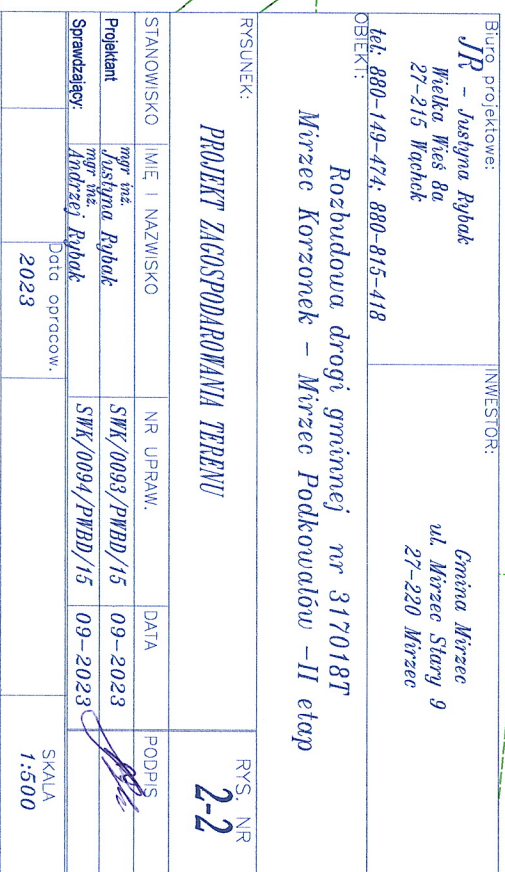 Biuro projektowe:
JR - Justyna Rybak
Wielka Wieś 8a
27-215 Wąchck
tel: 880-149-474; 880-815-418
INWESTOR:
Gmina Mirzec
ul. Mirzec Stary 9
27-220 Mirzec
OBIEKT:
Rozbudowa drogi gminnej nr 317018T
Mirzec Korzonek - Mirzec Podkowalów -II etap
RYSUNEK:
PROJEKT ZAGOSPODAROWANIA TERENU
RYS. NR
2-2
STANOWISKO IMIĘ I NAZWISKO NR UPRAW. DATA PODPIS
Projektant mgr inż. Justyna Rybak SWK/0093/PWBD/15 09-2023
Sprawdzający: mgr inż. Andrzej Rybak SWK/0094/PWBD/15 09-2023
Data opracow.
2023
SKALA
1:500